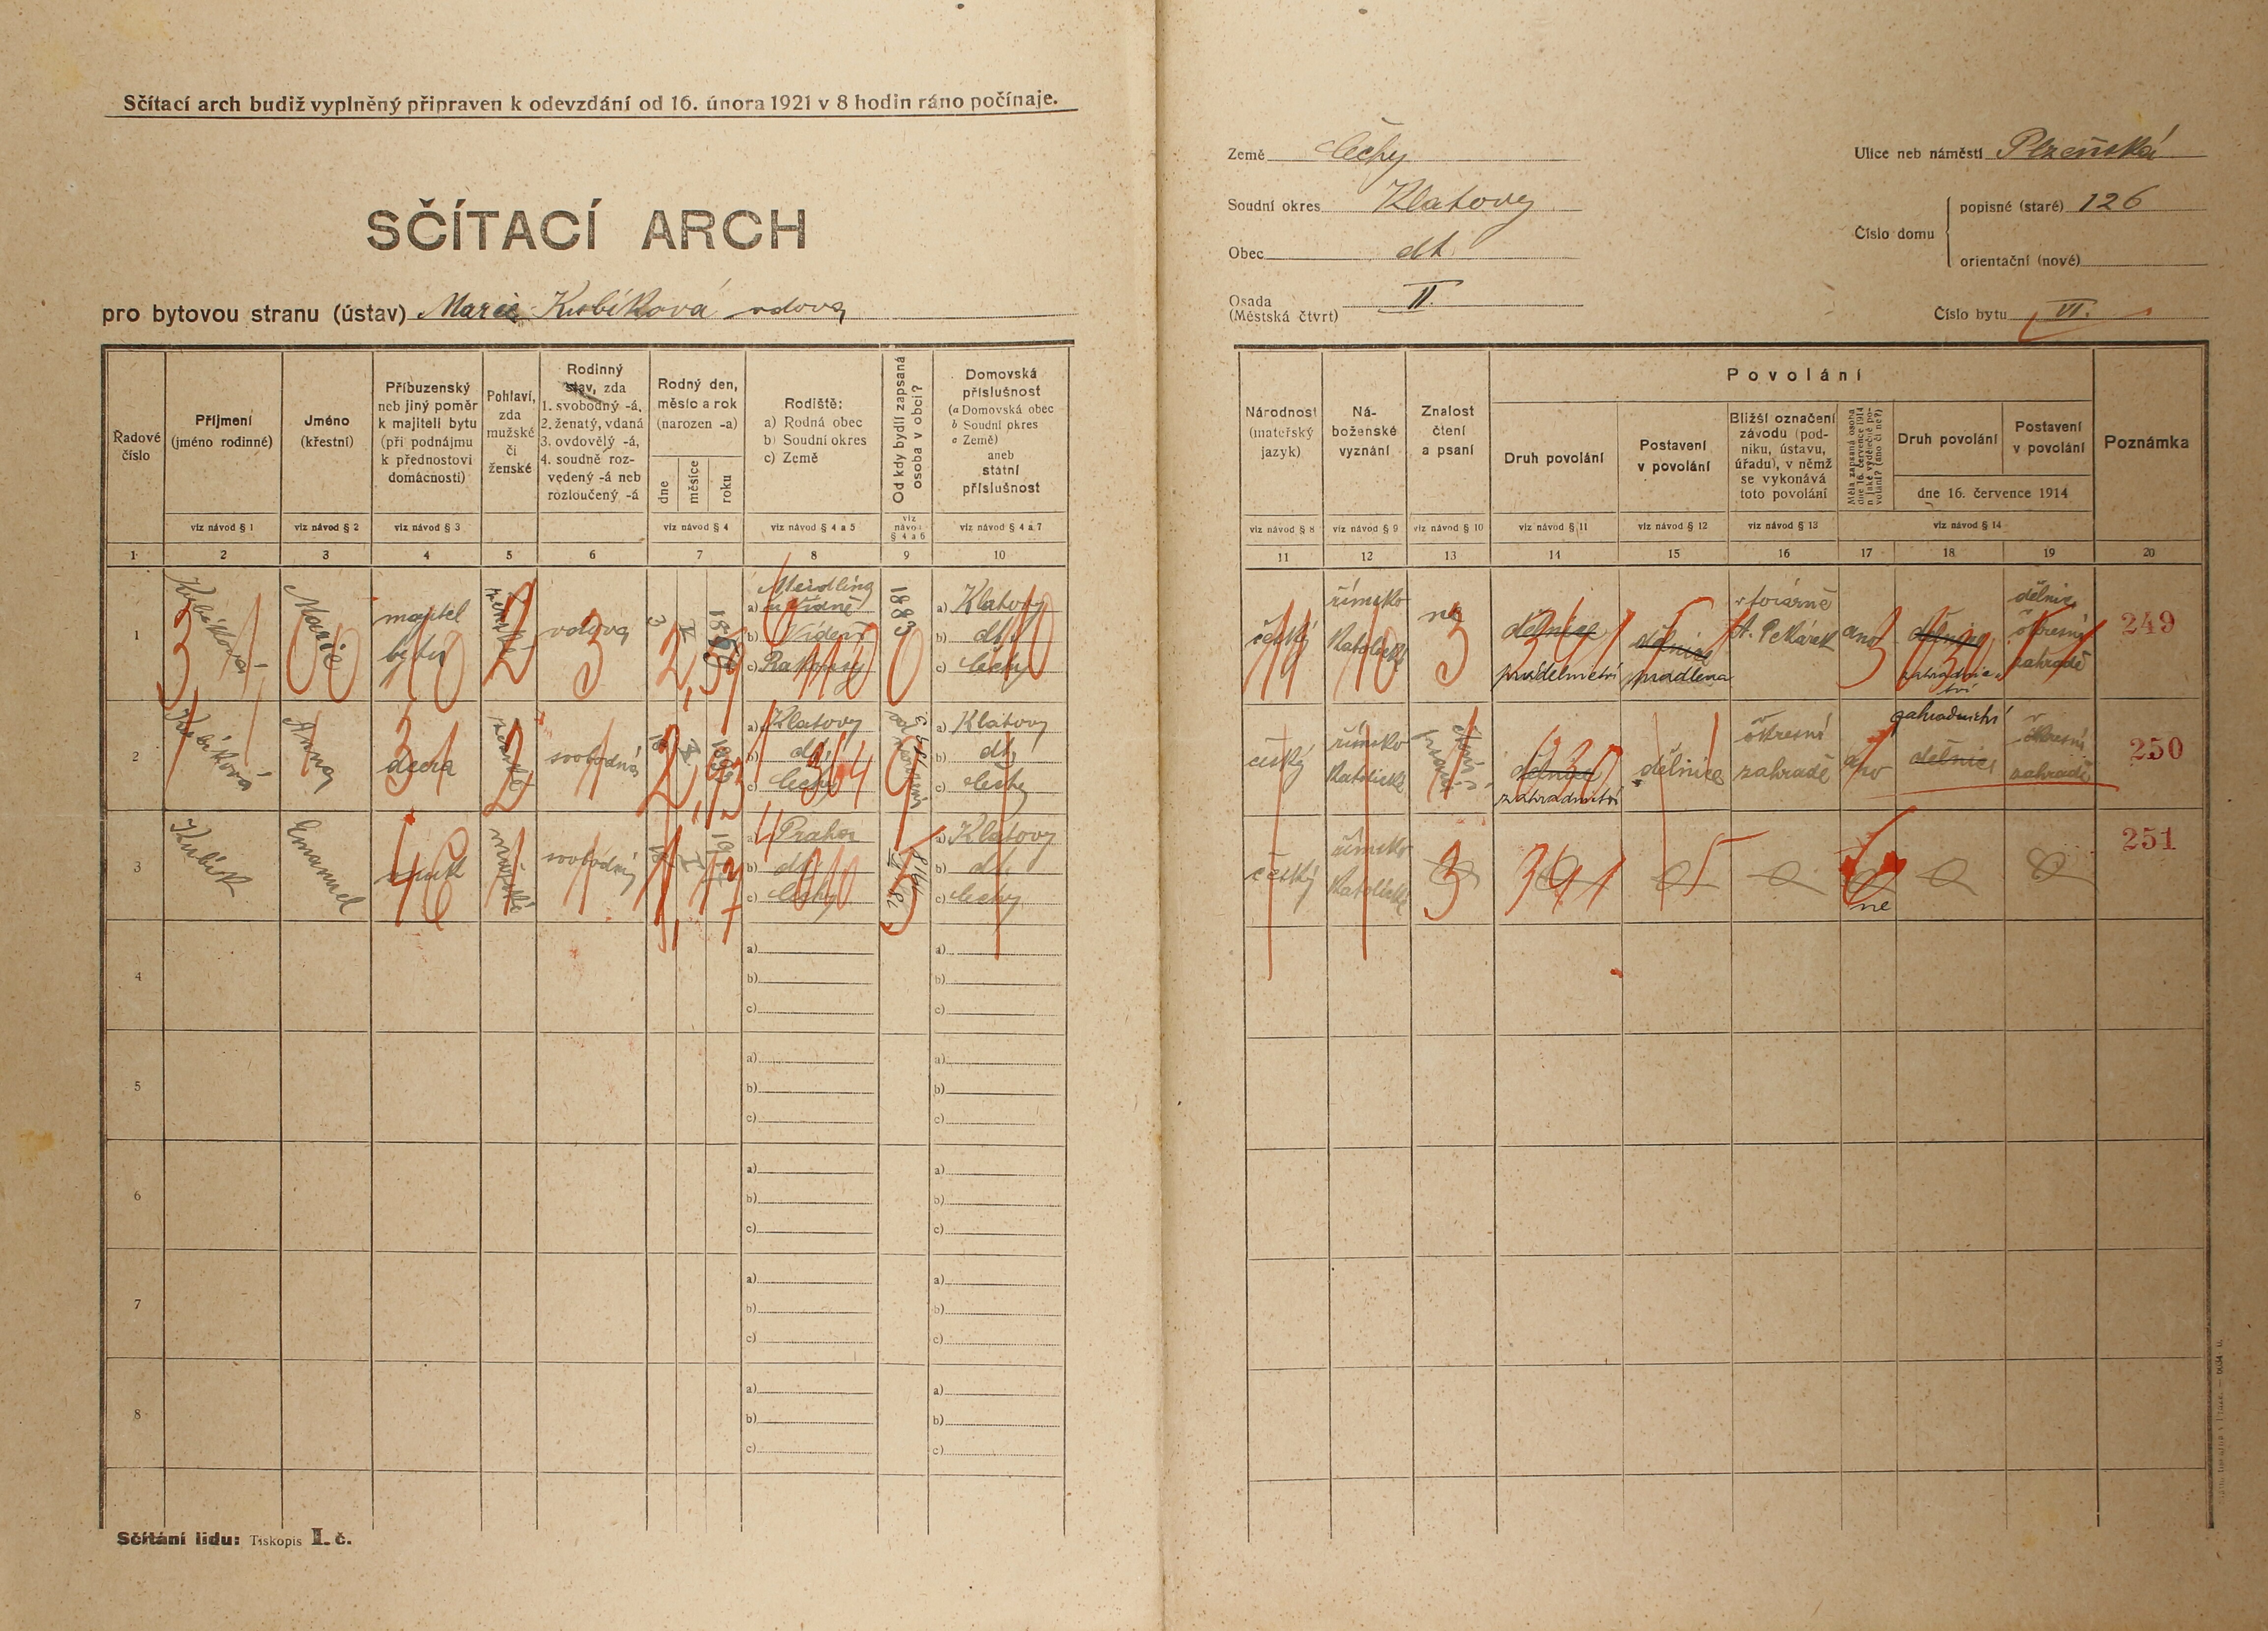 Sčítací arch budiž vyplněný připraven k odevzdání od 16. února 1921 v 8 hodin ráno počínaje.
SČÍTACÍ ARCH
pro bytovou stranu (ústav) Marie Kubíková vdova
Země Čechy
Soudní okres Klatovy
Obec dt.
Osada
(Městská čtvrt) II.
Ulice neb náměstí Plzeňská
Číslo domu
popisné (staré) 126
orientační (nové)
Číslo bytu VI.
Řadové
číslo
Příjmení
(jméno rodinné)
Jméno
(křestní)
Příbuzenský
neb jiný poměr
k majiteli bytu
(při podnájmu
k přednostovi
domácnosti)
Pohlaví,
zda
mužské
či
ženské
Rodinný
stav, zda
1. svobodný -á,
2. ženatý, vdaná
3. ovdovělý -á,
4. soudně roz-
vedený -á neb
rozloučený -á
Rodný den,
měsíc a rok
(narozen -a)
dne
měsíce
roku
Rodiště:
a) Rodná obec
b) Soudní okres
c) Země
Od kdy bydlí zapsaná
osoba v obci?
Domovská
příslušnost
(a Domovská obec
b Soudní okres
c Země)
aneb
státní
příslušnost
viz návod § 1
viz návod § 2
viz návod § 3
viz návod § 4
viz návod § 4 a 5
viz
návod
§ 4 a 6
viz návod § 4 a 7
1 2 3 4 5 6 7 8 9 10
Národnost
(mateřský
jazyk)
Ná-
boženské
vyznání
Znalost
čtení
a psaní
Povolání
Druh povolání
Postavení
v povolání
Bližší označení
závodu (pod-
niku, ústavu,
úřadu), v němž
se vykonává
toto povolání
Měla zapsaná osoba
dne 16. července 1914
nějaké výdělečné po-
volání? (ano či ne?)
Druh povolání
Postavení
v povolání
dne 16. července 1914
Poznámka
viz návod § 8
viz návod § 9
viz návod § 10
viz návod § 11
viz návod § 12
viz návod § 13
viz návod § 14
11 12 13 14 15 16 17 18 19 20
1
Kubíková
Marie
majitel
bytu
ženské
vdova
3
a) Meidling
u Vídně
b) Vídeň
c) Rakousy
1883
a) Klatovy
b) dt.
c) Čechy
český
římsko
katolické
ne
dělnice
prádelnictví
dělnice
pradlena
ano
zahradnic-
tví
dělnice
okresní
zahradě
249
2
Kubíková
Anna
dcera
ženské
svobodná
a) Klatovy
b) dt.
c) Čechy
od narození
a) Klatovy
b) dt.
c) Čechy
český
římsko
katolické
dělnice
zahradnictví
dělnice
okresní
zahradě
ano
zahradnictví
dělnice
v
okresní
zahradě
250
3
Kubík
Emanuel
vnuk
mužské
svobodný
a) Praha
b) dt.
c) Čechy
a) Klatovy
b) dt.
c) Čechy
český
římsko
katolické
ne
251
4
a)
b)
c)
a)
b)
c)
5
a)
b)
c)
a)
b)
c)
6
a)
b)
c)
a)
b)
c)
7
a)
b)
c)
a)
b)
c)
8
a)
b)
c)
a)
b)
c)
Sčítání lidu: Tiskopis I. č.